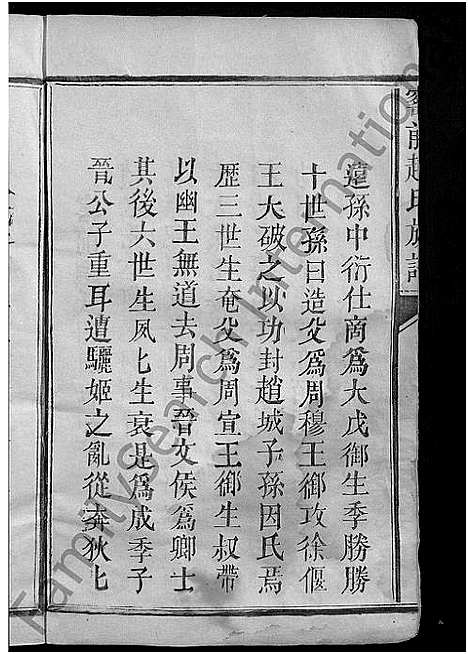 遠孫中衍仕商爲大戊御生季勝勝
十世孫曰造父爲周穆王御攻徐偃
王大破之以功封趙城子孫因氏焉
歷三世生奄父爲周宣王御生叔帶
以幽王無道去周事晉文侯爲卿士
其後六世生夙匕生衰是爲成季子
晉公子重耳遭驪姬之亂從奔狄匕
前趙氏族譜
FamilySearch International